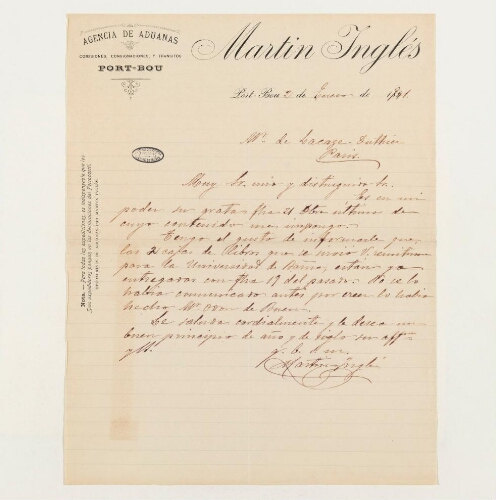 AGENCIA DE ADUANAS
COMISIONES, CONSIGNACIONES, Y TRANSITOS
PORT-BOU
Martin Inglés
Port-Bou 2 de Enero de 1901.
Mr. de Lacaze Duthiers
Paris
Muy Sr. mio y distinguido
Es en mi
poder su grata fha 21 Dbre ultimo de
cuyo contenido me impongo.
Tengo el gusto de informarle que
las 2 cajas de libros que se sirvió V. remitirme
para la Universidad de Barna, estan ya
entregadas con fha 19 del pasado. No se lo
habia comunicado antes por creer lo habia
hecho Mr. Odon de Buen.
Le saluda cordialmente y le desea un
buen principio de año y de siglo su aff
y SS.
q. b. s. m.
Martin Inglés
NOTA.